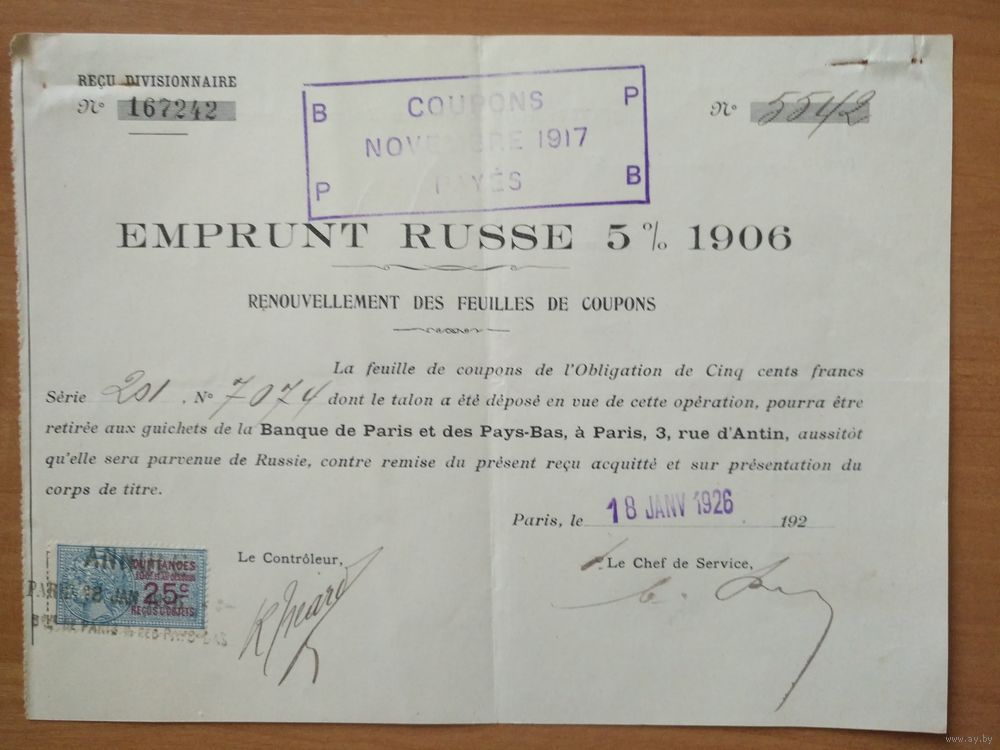 REÇU DIVISIONNAIRE
Nº 167242
B COUPONS P
NOVEMBRE 1917
P PAYÉS B
Nº 5542
EMPRUNT RUSSE 5% 1906
RENOUVELLEMENT DES FEUILLES DE COUPONS
La feuille de coupons de l'Obligation de Cinq cents francs
Série 201. Nº 7074 dont le talon a été déposé en vue de cette opération, pourra être
retirée aux guichets de la Banque de Paris et des Pays-Bas, à Paris, 3, rue d'Antin, aussitôt
qu'elle sera parvenue de Russie, contre remise du présent reçu acquitté et sur présentation du
corps de titre.
Paris, le 18 JANV 1926 192
Le Contrôleur,
Le Chef de Service,
QUITTANCES
25c
REÇUS D'OBJETS
PARIS 18 JAN
DE PARIS & DES PAYS-BAS
www.ay.by